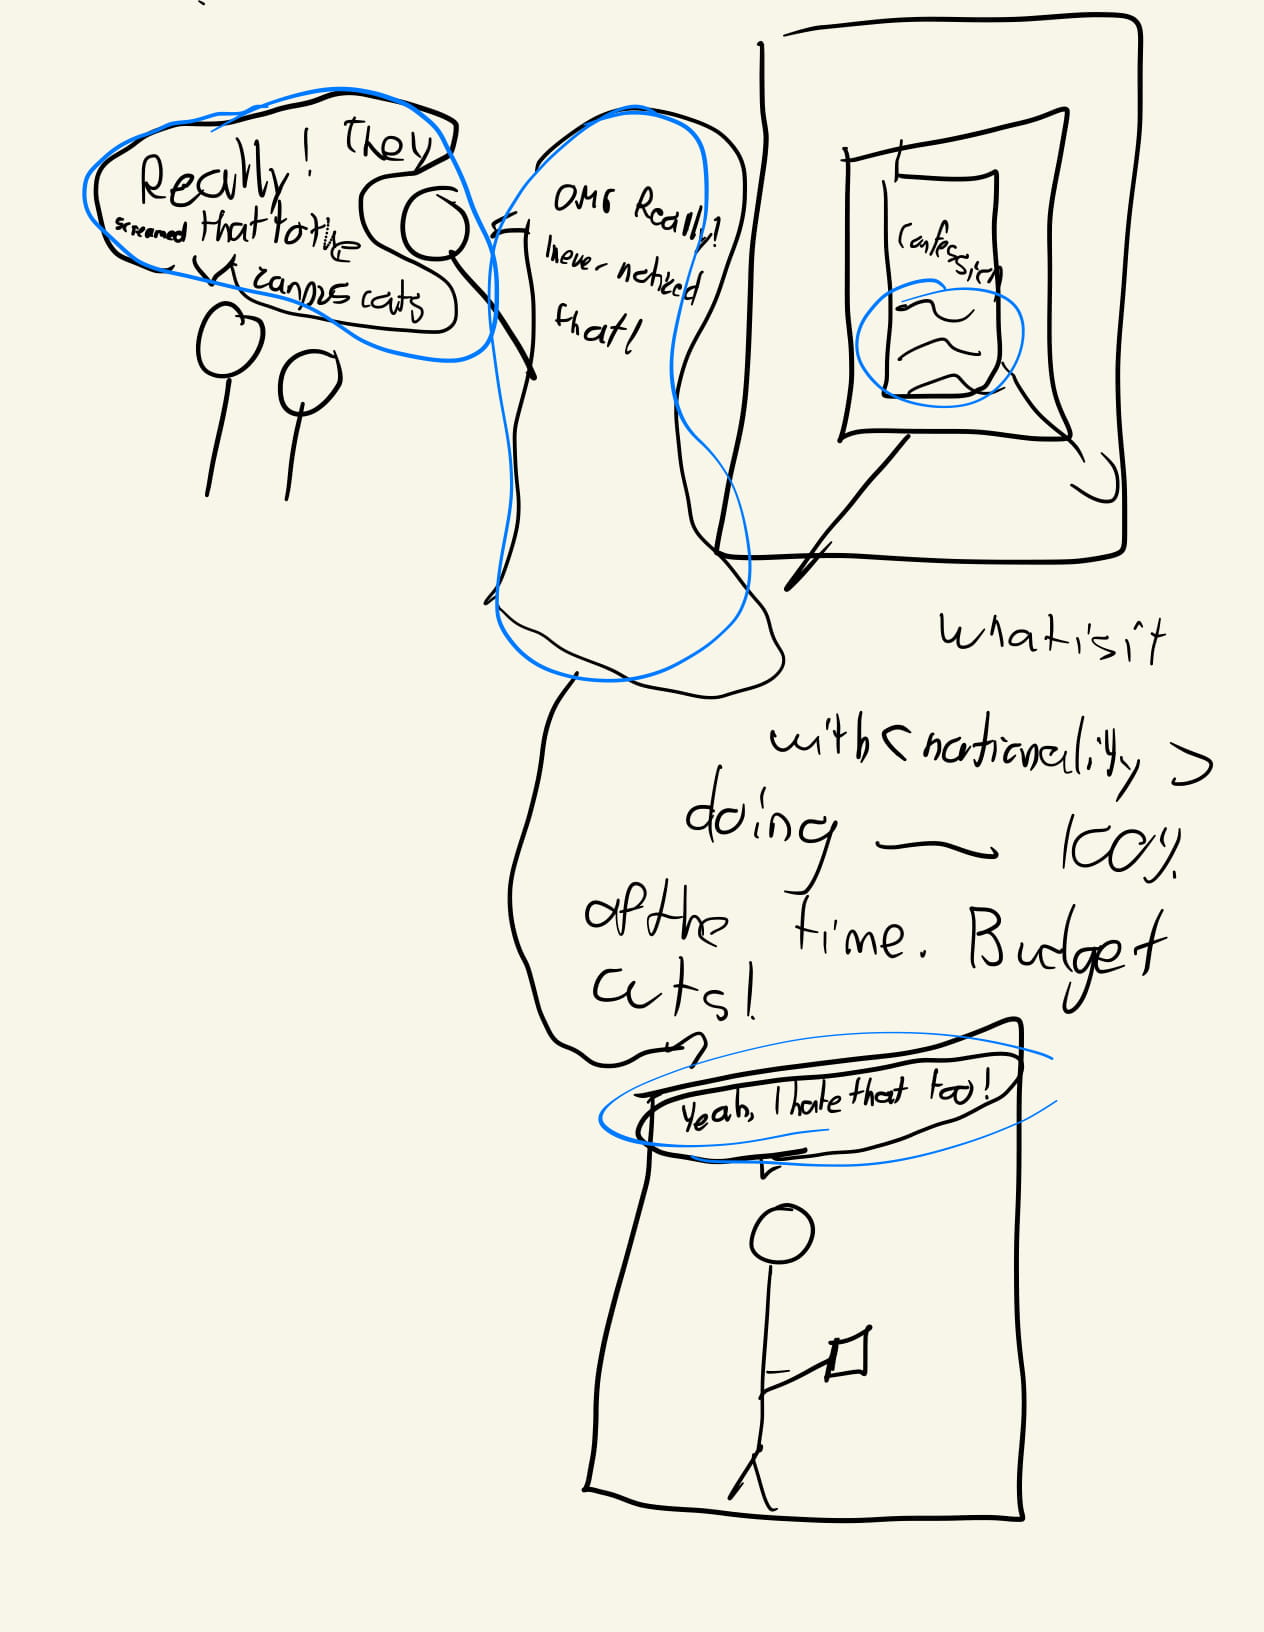 Really! They
screamed that to the
campus cats
OMG Really!
I never noticed
that!
Confession
What is it
with < nationality >
doing 100%
of the time. Budget
cuts!
Yeah, I hate that too!